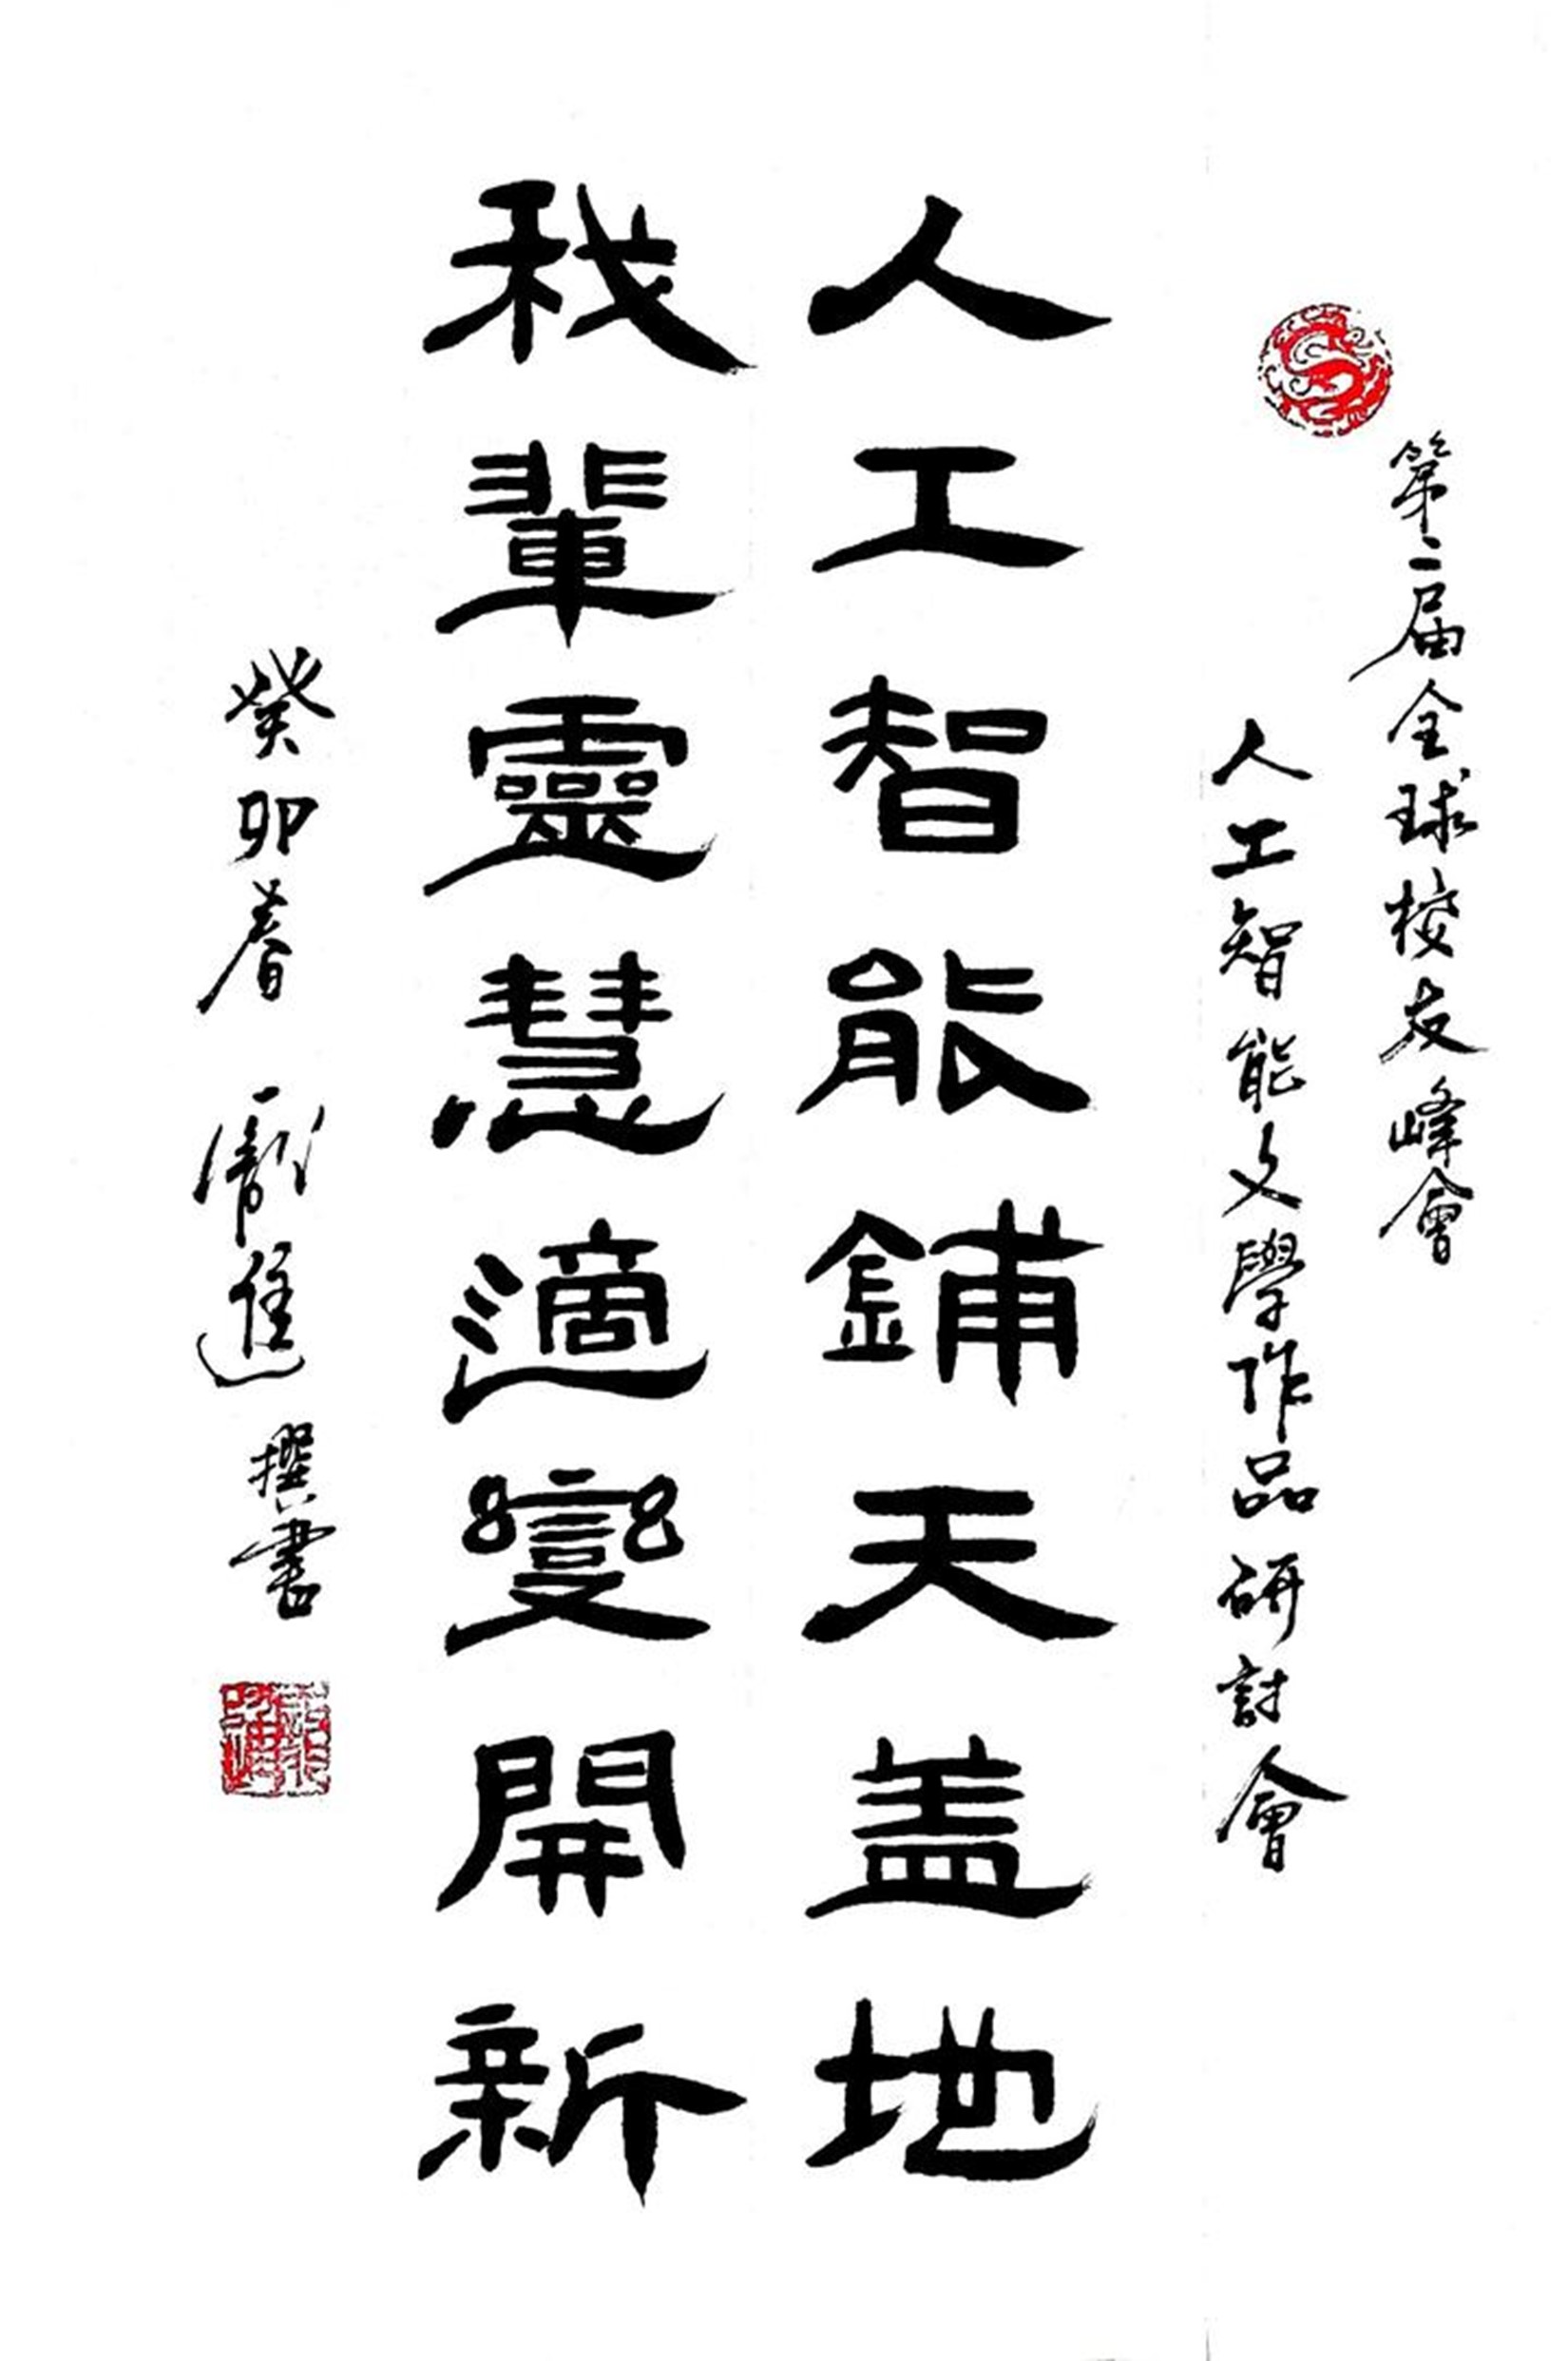 第二届全球校友峰會
人工智能文學作品研討會
人工智能鋪天盖地
我輩靈慧適變開新
癸卯春 進撰書